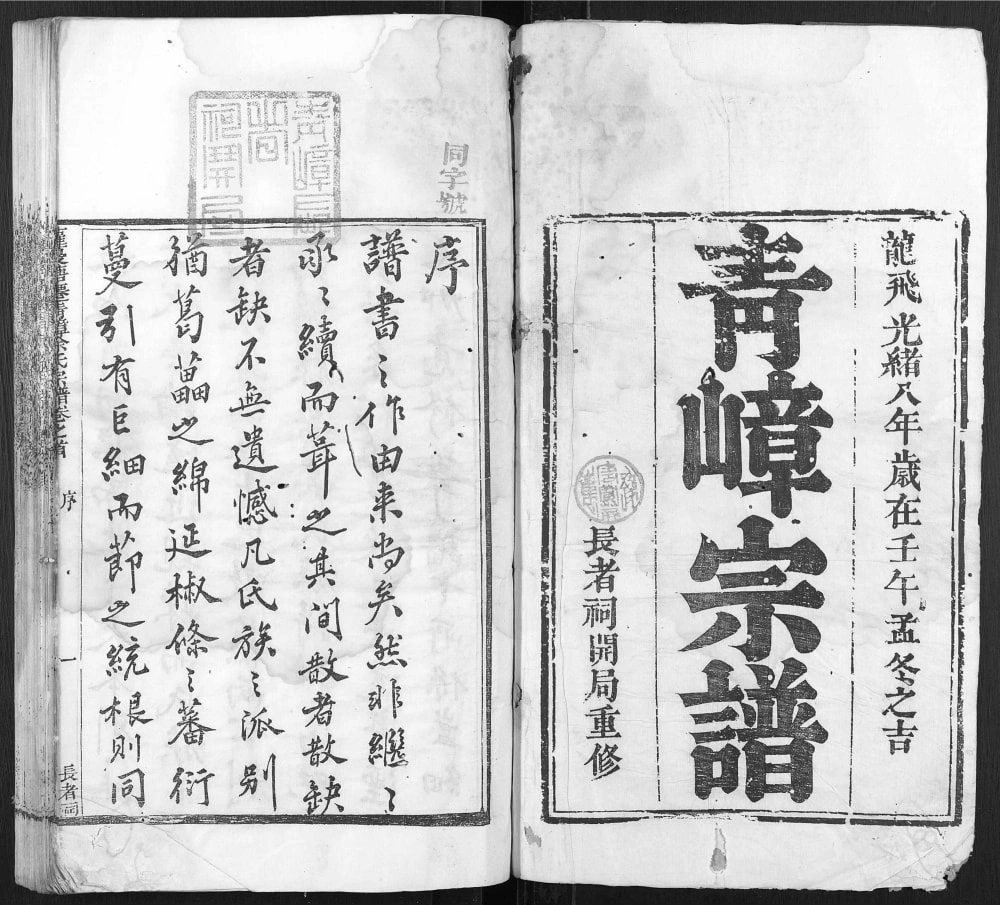 龍飛光緒八年歲在壬午孟冬之吉
青嶂宗譜
長者祠開局重修
同字號
青嶂長
尚
祠開局
序
譜書之作由来尚矣然非繼〻
承〻續而葺之其间散者散缺
者缺不無遺憾凡氏族之派别
猶葛藟之綿延椒條之蕃衍
蔓引有巨細而莭之統根则同
序
一
長者祠